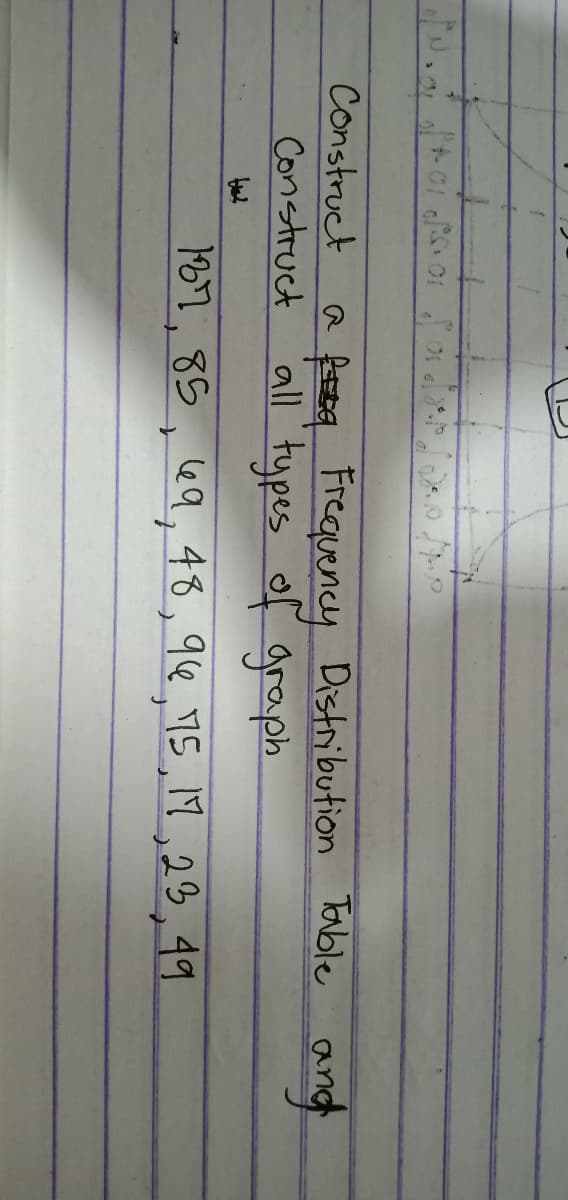 Construct a Frequency Distribution Table and
Construct all types of graph
187, 85, 69, 48, 96, 75, 17, 23, 49